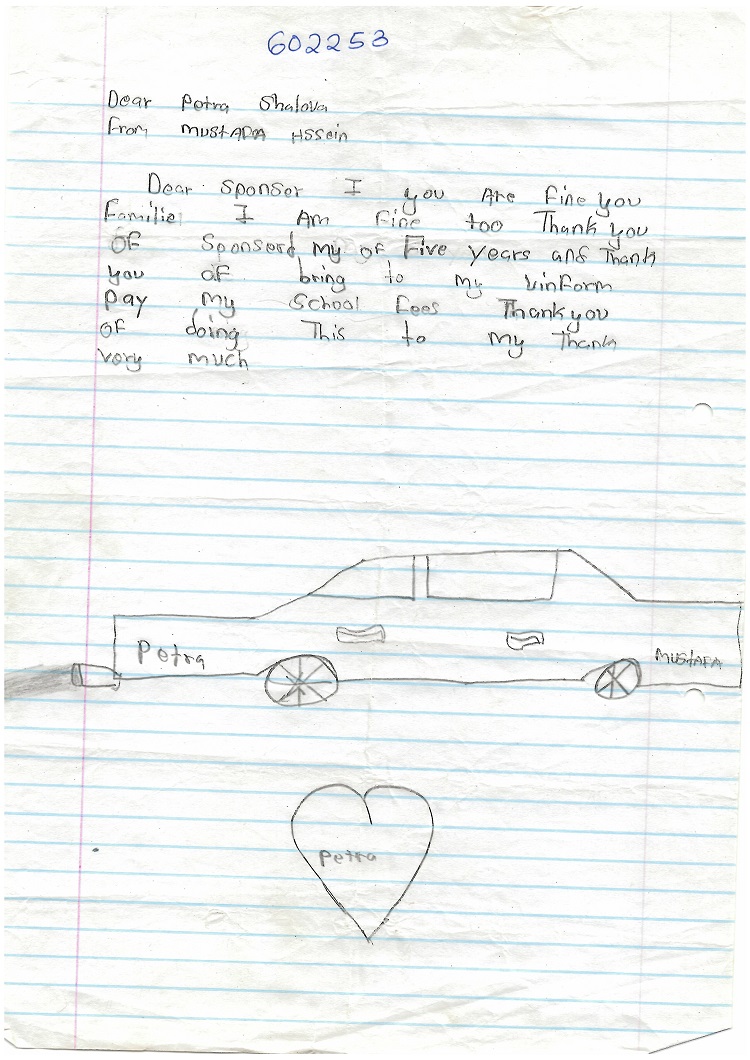 602253
Dear Petra Shalova
From MUSTAPA HSSein
Dear Sponser I you Are Fine you
Familie I Am Fine too Thank you
OF Sponserd my of Five years and Thank
you of bring to my uinForm
Pay my School Fees Thank you
of doing This to my Thank
very much
Petra
MUSTAPA
Petra